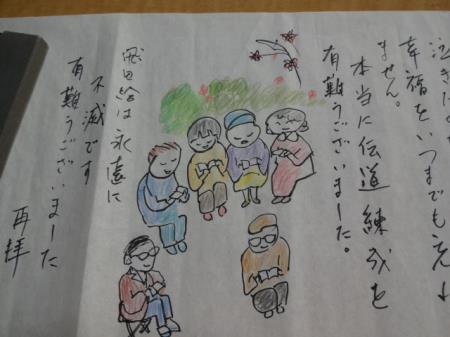 幸福をいつまでも忘れ
ません。
本当に伝道練成を
有難うございました。
飛田給は永遠に
不滅です
有難うございました
再拝